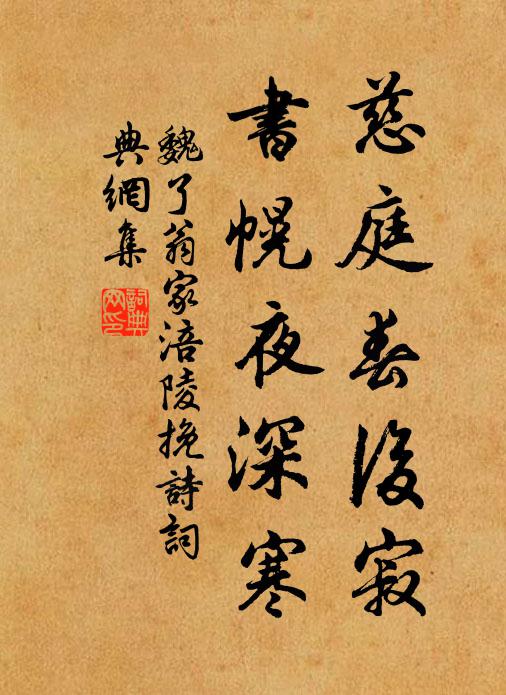 慈庭春後寂
書幌夜深寒
魏了翁家涪陵挽詩詞
典網集
詞典
網印